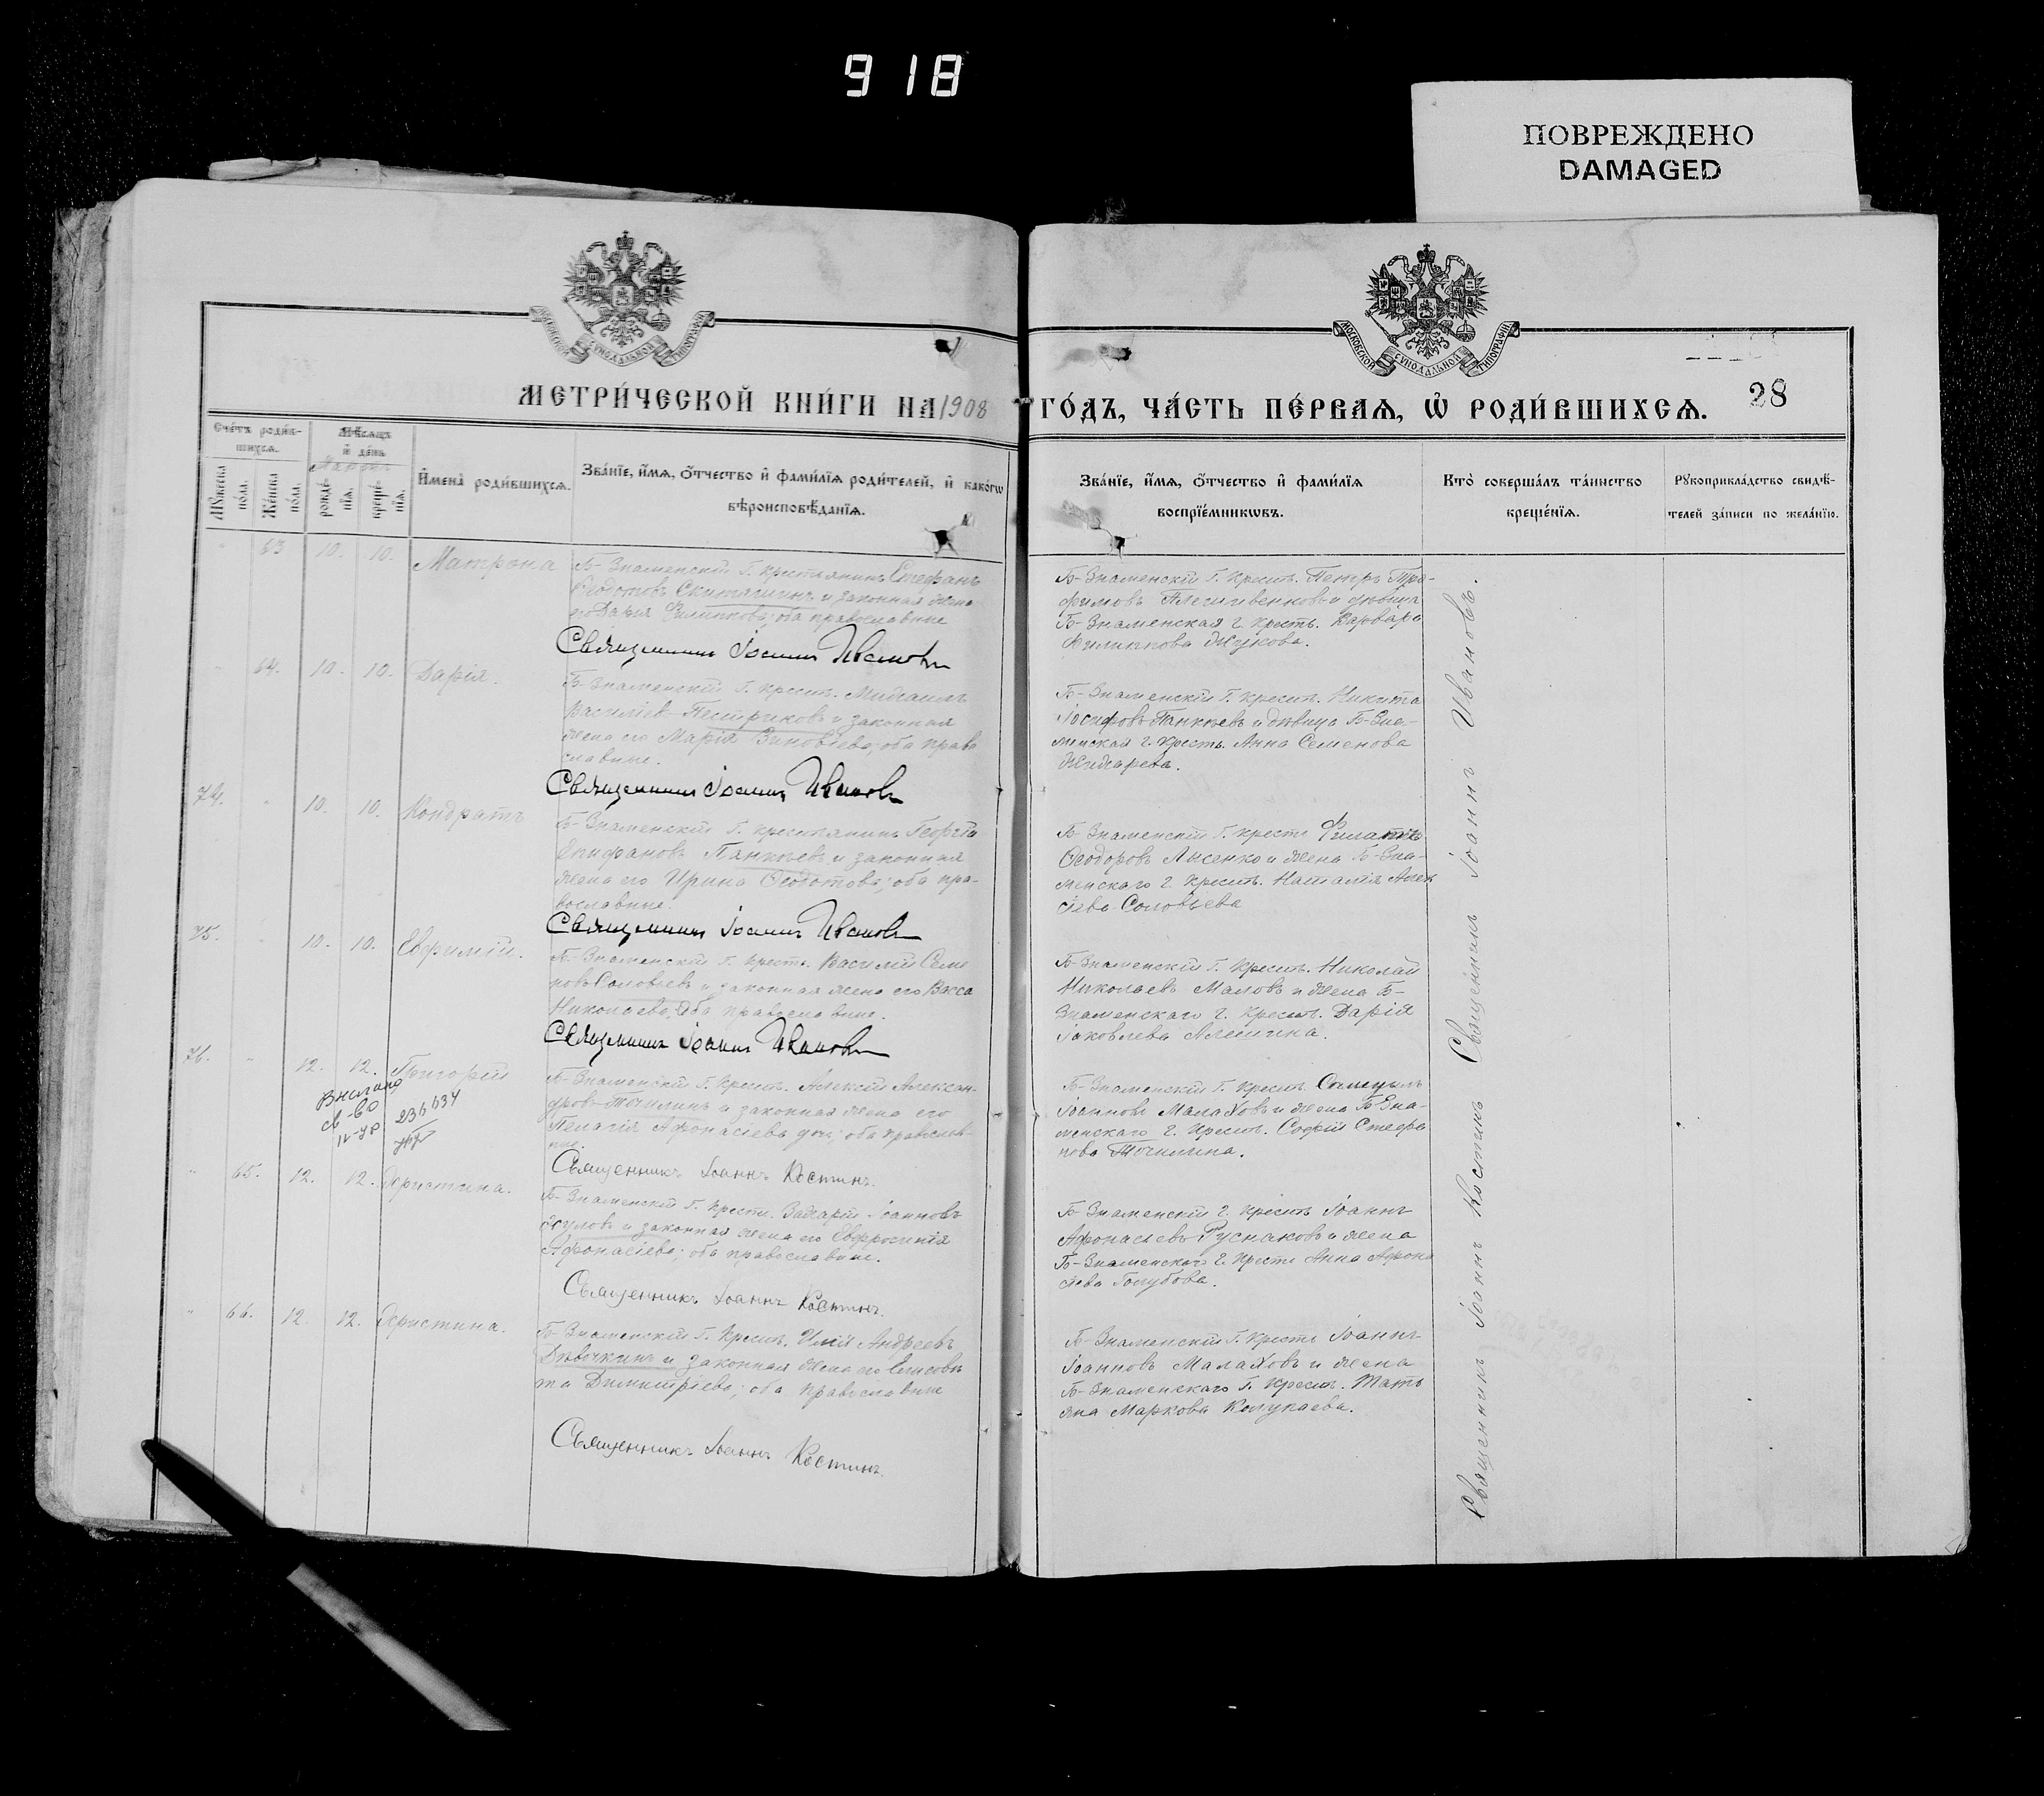 918
ПОВРЕЖДЕНО
DAMAGED
МОСКОВСКОЙ СУНОДАЛЬНОЙ ТИПОГРАФІИ
МОСКОВСКОЙ СУНОДАЛЬНОЙ ТИПОГРАФІИ
МЕТРИ́ЧЕСКОЙ КНИ́ГИ НА 1908 ГО́ДЪ, ЧА́СТЬ ПЕ́РВАѦ, Ѡ РОДИ́ВШИХСѦ.
28
Сче́тъ роди́в-
шихсѧ.
Мѣ́сѧцъ
и҆ де́нь
Мужеска
по́ла.
Же́нска
по́ла.
рожде́-
нїѧ.
креще́-
нїѧ.
И҆мена̀ роди́вшихсѧ.
Зва́нїе, и҆́мѧ, ѻ҆́тчество и҆ фами́лїѧ роди́телей, и҆ како́гѡ
вѣроисповѣ́данїѧ.
Зва́нїе, и҆́мѧ, ѻ҆́тчество и҆ фами́лїѧ
воспрїе́мникѡвъ.
Кто̀ соверша́лъ та́инство
креще́нїѧ.
Рꙋкоприкла́дство свидѣ́-
телей за́писи по жела́нїю.
" 63 10. 10. Матрона
Б-Знаменскій Г. крестьянинъ Стефанъ
Ѳеодотовъ и законная жена
его Дарія оба православные
Священникъ Іоаннъ Ивановъ
Б-Знаменскій Г. крест. Петръ Тро-
фимовъ и дѣвица
Б-Знаменская г. крест. Варвара
Филиппова Жукова.
" 64. 10. 10. Дарія.
Б-Знаменскій Г. крест. Михаилъ
Василіев Пестриковъ и законная
жена его Марія Зиновіева; оба право
славные.
Священникъ Іоаннъ Ивановъ
Б-Знаменскій Г. крест. Никита
Іосифовъ Панкѣевъ и дѣвица Б-Зна-
менская г. крест. Анна Семенова
74. " 10. 10. Кондратъ
Б-Знаменскій Г. крестьянинъ Георгій
Епифановъ Панкѣевъ и законная
жена его Ирина Ѳеодотова; оба пра-
вославные.
Священникъ Іоаннъ Ивановъ
Б-Знаменскій Г. крест.
Ѳеодоровъ Лысенко и жена Б-Зна-
менскаго г. крест. Наталія Алек
сіева Соловьева
75. " 10. 10. Евфимій.
Б-Знаменскій Г. крест. Василій Семе
новъ Соловьевъ и законная жена его Васса
Николаева; оба православные.
Священникъ Іоаннъ Ивановъ
Б-Знаменскій Г. крест. Николай
Николаевъ Маловъ и жена Б-
Знаменскаго г. крест. Дарія
Іаковлева Алешина.
76. " 12. 12. Григорій
св-во
236634
Б-Знаменскій Г. крест. Алексій Алексан-
дровъ Точилинъ и законная жена его
Пелагія Афонасіева оба православ-
ные.
Священникъ Іоаннъ Костинъ.
Б-Знаменскій Г. крест. Самуилъ
Іоанновъ Малаховъ и жена Б-Зна-
менскаго г. крест. Софія Стефа
нова Точилина.
" 65. 12. 12. Христина.
Б-Знаменскій Г. крест. Захарій Іоанновъ
и законная жена его Евфросинія
Афонасіева; оба православные.
Священникъ Іоаннъ Костинъ.
Б-Знаменскій г. крест Іоаннъ
Афонасіевъ Руснаковъ и жена
Б-Знаменскаго г. крест Анна Афона
сіева Голубова.
" 66. 12. 12. Христина.
Б-Знаменскій Г. крест. Илія Андреевъ
Дѣвочкинъ и законная жена его Елисаве
та Димитріева; оба православные
Священникъ Іоаннъ Костинъ.
Б-Знаменскій Г. крест Іоаннъ
Іоанновъ Малаховъ и жена
Б-Знаменскаго Г. крест. Тать
яна Маркова Колупаева.
Священникъ Іоаннъ Костинъ Священникъ Іоаннъ Ивановъ.